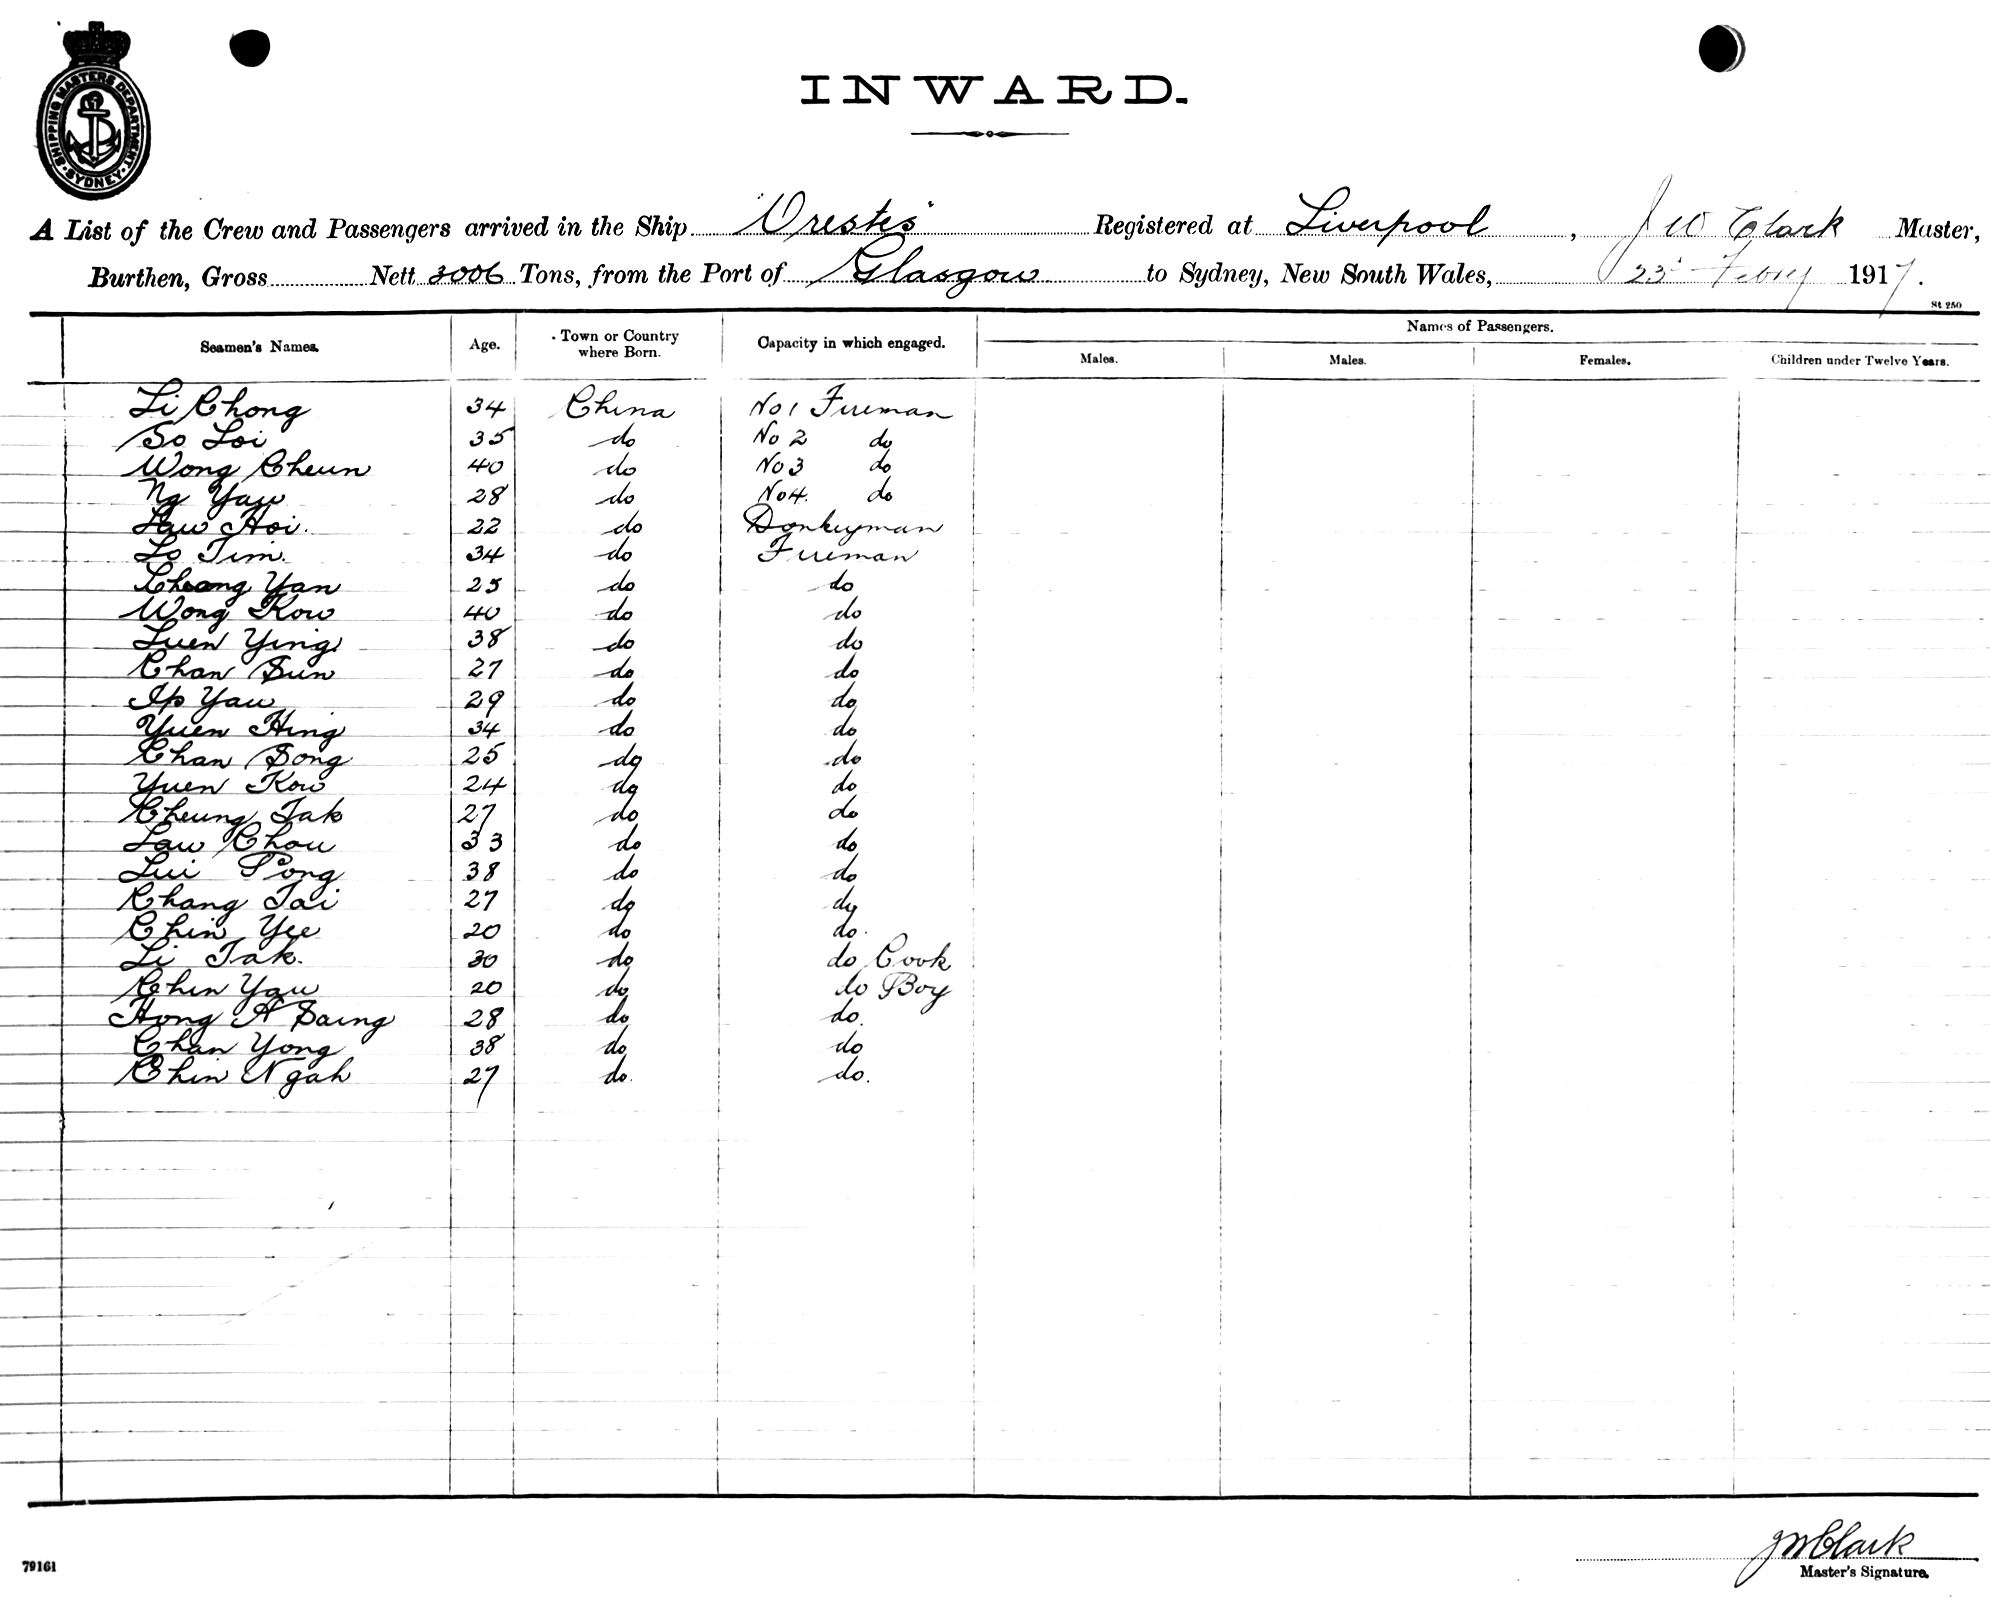 SHIPPING MASTERS DEPARTMENT · SYDNEY ·
INWARD.
A List of the Crew and Passengers arrived in the Ship "Orestes" Registered at Liverpool, J W Clark Master,
Burthen, Gross Nett 3006 Tons, from the Port of Glasgow to Sydney, New South Wales, 23 Febry 1917.
St 250
Seamen's Names. Age. Town or Country where Born. Capacity in which engaged. Names of Passengers.
Males. Males. Females. Children under Twelve Years.
Li Chong 34 China No 1 Fireman
So Loi 35 do No 2 do
Wong Cheun 40 do No 3 do
Ng Yaw 28 do No 4. do
Law Hoi. 22 do Donkeyman
Lo Tim. 34 do Fireman
Cheong Yan 25 do do
Wong Kow 40 do do
Luen Ying 38 do do
Chan Sun 27 do do
Ip Yau 29 do do
Yuen Hing 34 do do
Chan Song 25 do do
Yuen Kow 24 do do
Cheung Tak 27 do do
Law Chou 33 do do
Lui Pong 38 do do
Chang Tai 27 do do
Chin Yee 20 do do.
Li Tak. 30 do do Cook
Chin Yau 20 do do Boy
Hong A Saing 28 do do.
Chan Yong 38 do do
Chin Ngah 27 do. do.
J W Clark
79161 Master's Signature.